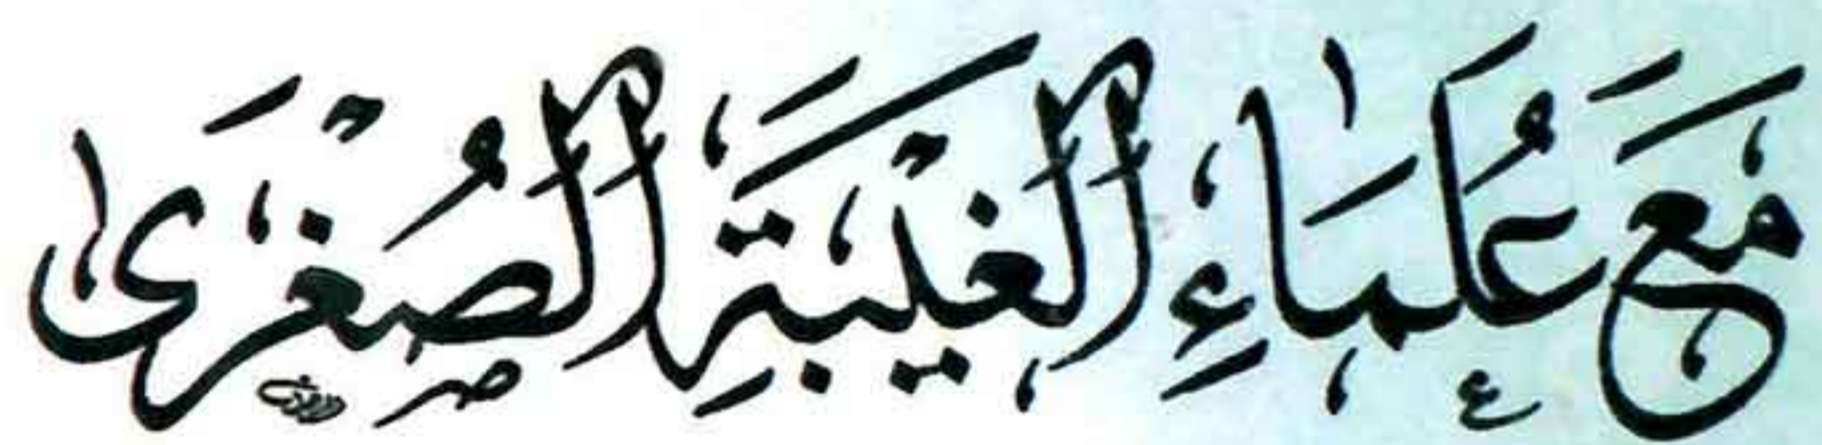 مَعَ عُلَمَاءِ الغَيْبَةِ الصُغْرَى